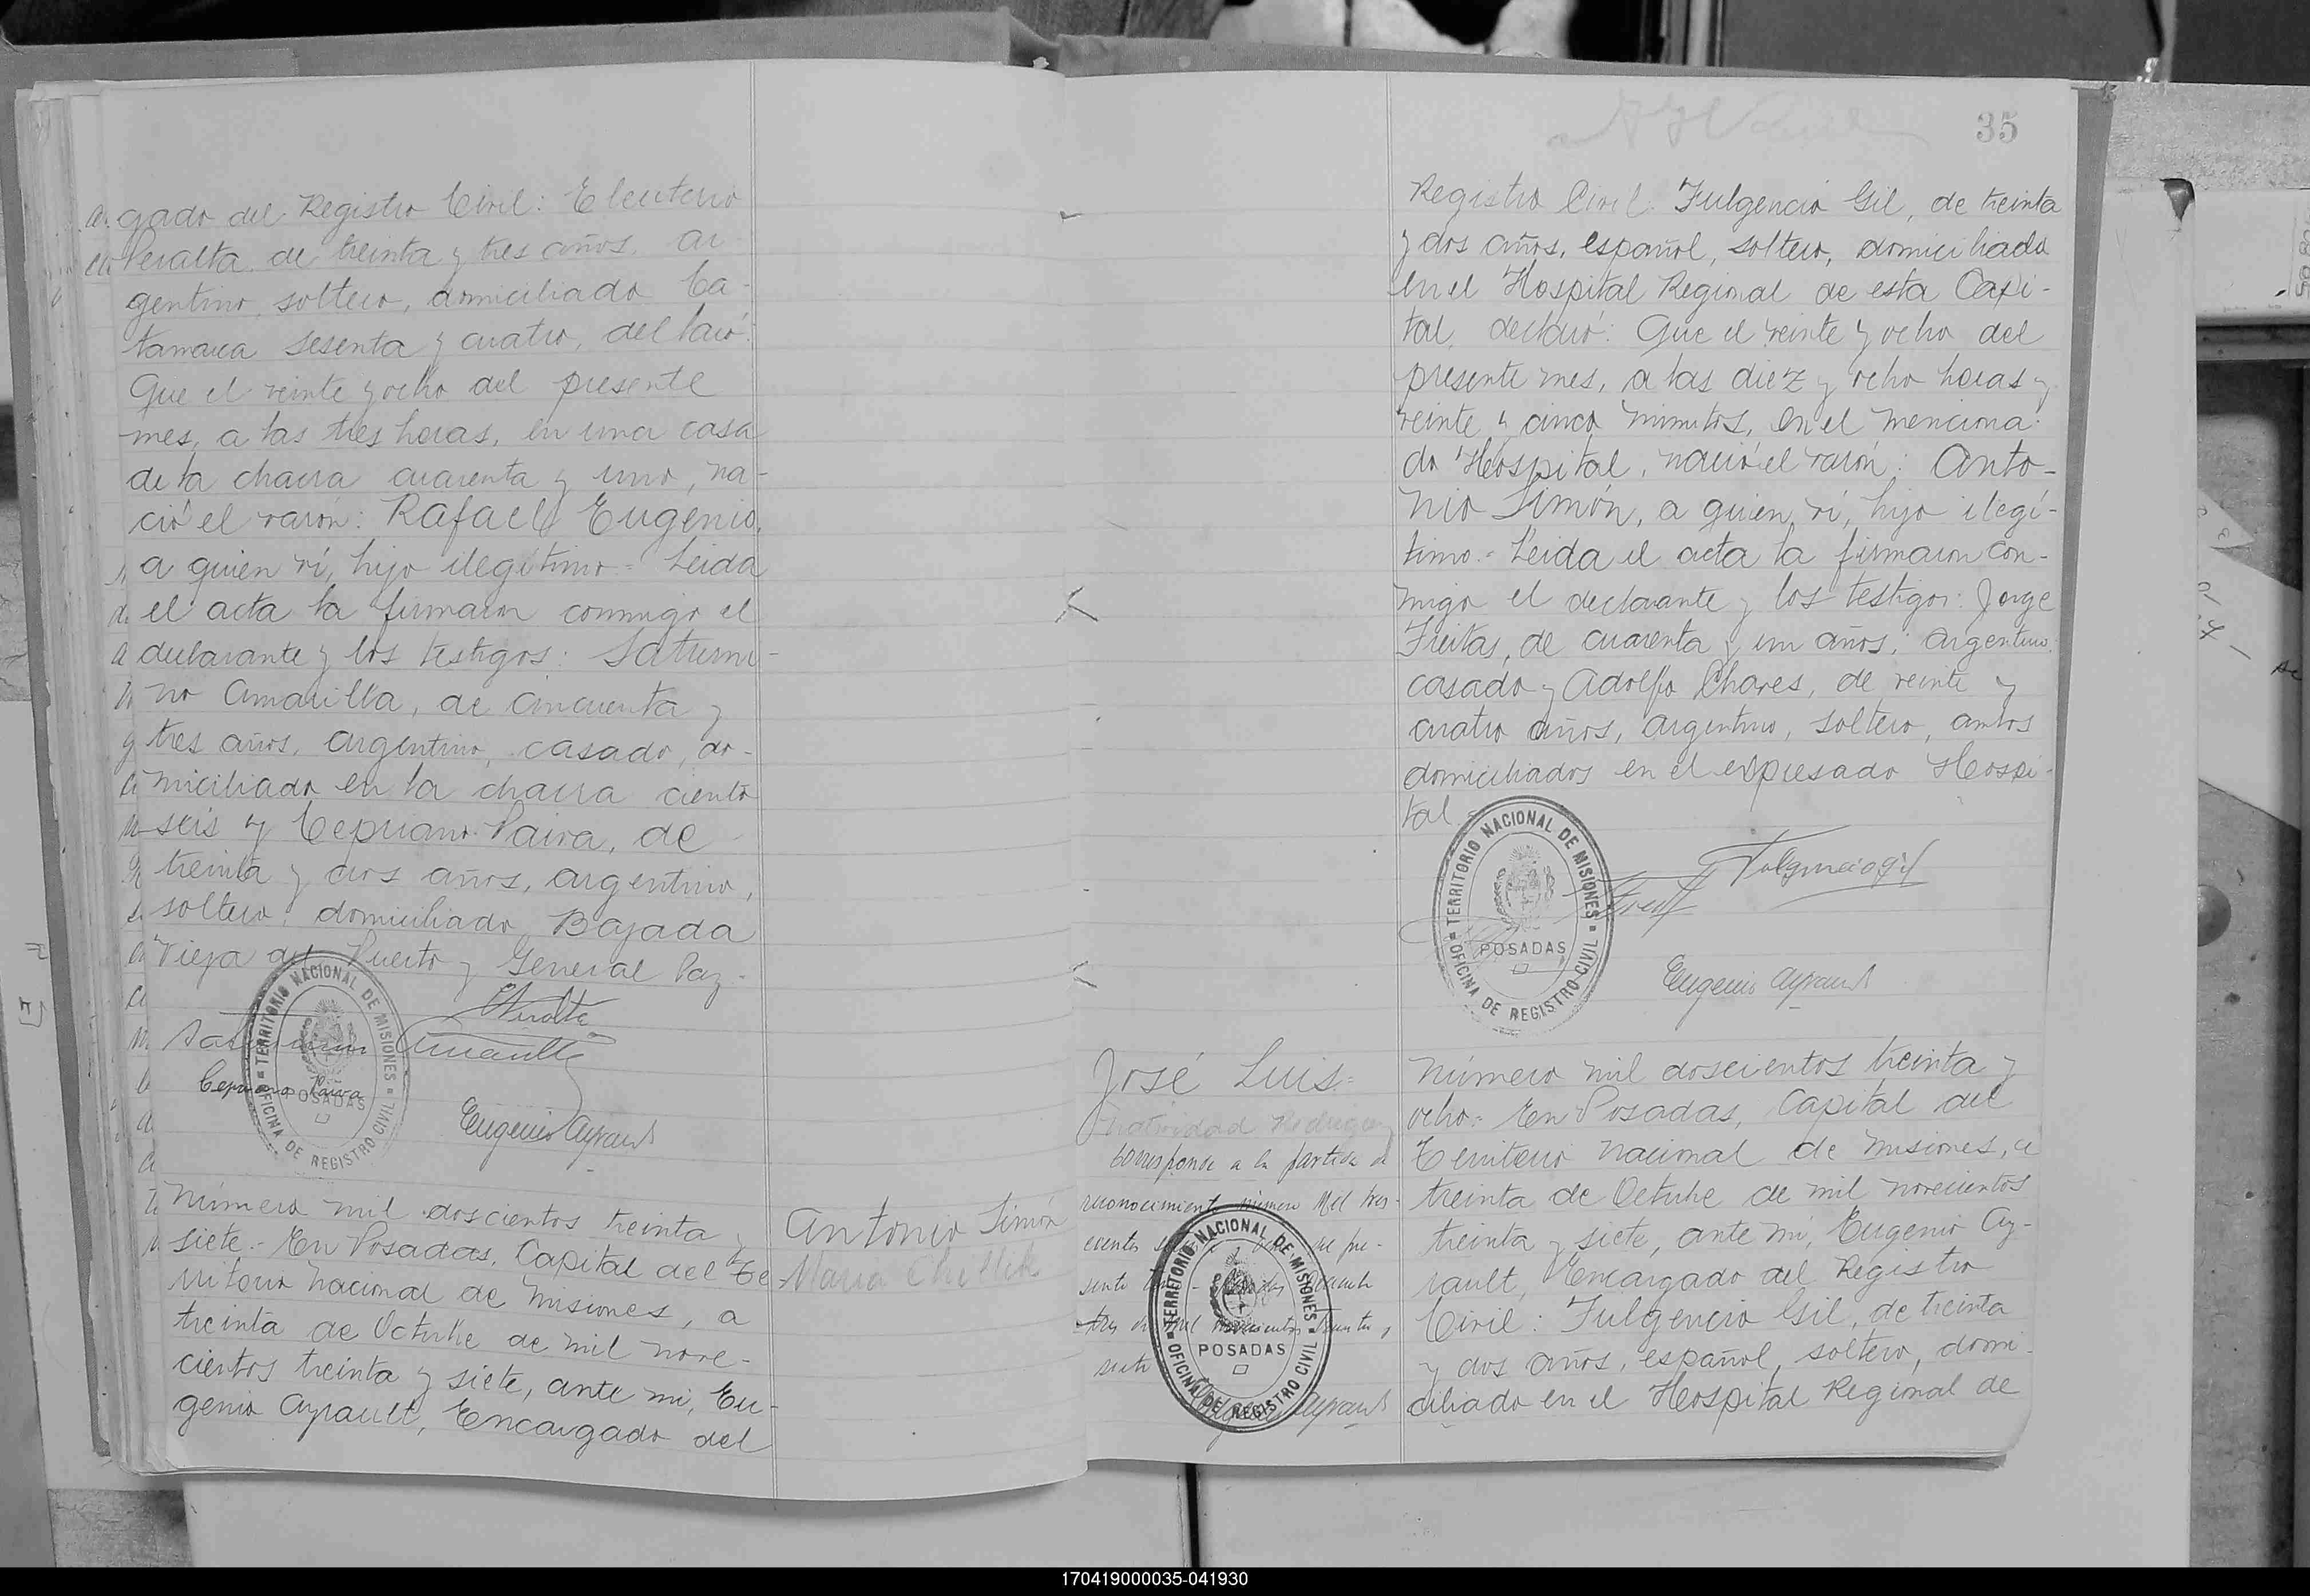 gado del Registro Civil: Eleuterio
Peralta, de treinta y tres años, ar-
gentino, soltero, domiciliado Ca-
tamarca sesenta y cuatro, declaró:
Que el veinte y ocho del presente
mes, a las tres horas, en una casa
de la chacra cuarenta y uno, na-
ció el varón: Rafael Eugenio,
a quien ví, hijo ilegítimo = Leida
el acta la firmaron conmigo el
declarante y los testigos: Saturni-
no Amarilla, de cincuenta y
tres años, argentino, casado, do-
miciliado en la chacra ciento
seis y Cepriano Paiva, de
treinta y dos años, argentino,
soltero, domiciliado Bajada
Vieja del Puerto y General Paz.-
EPeralta
Saturnino Amarilla
Cepriano Paiva
Eugenio Ayrault
TERRITORIO NACIONAL DE MISIONES
POSADAS
OFICINA DE REGISTRO CIVIL
Número mil doscientos treinta y
siete.- En Posadas, Capital del Te-
rritorio Nacional de Misiones, a
treinta de Octubre de mil nove-
cientos treinta y siete, ante mi, Eu-
genio Ayrault, Encargado del
Antonio Simón
Maria
35
Registro Civil: Fulgencio Gil, de treinta
y dos años, español, soltero, domiciliado
en el Hospital Regional de esta Capi-
tal, declaró: Que el veinte y ocho del
presente mes, a las diez y ocho horas y
veinte y cinco minutos, en el menciona-
do Hospital, nació el varón: Anto-
nio Simón, a quien ví, hijo ilegí-
timo.- Leida el acta la firmaron con-
migo el declarante y los testigos: Jorge
Freitas, de cuarenta y un años, argentino,
casado y Adolfo Chares, de veinte y
cuatro años, argentino, soltero, ambos
domiciliados en el expresado Hospi-
tal.-
Fulgencio Gil
Eugenio Ayrault
TERRITORIO NACIONAL DE MISIONES
POSADAS
OFICINA DE REGISTRO CIVIL
José Luis=
Natividad Rodriguez
Corresponde a la partida de
reconocimiento número Mil tres-
cientos
sente
tres de mil novecientos treinta y
siete
Eugenio Ayrault
TERRITORIO NACIONAL DE MISIONES
POSADAS
OFICINA DE REGISTRO CIVIL
Número mil doscientos treinta y
ocho.- En Posadas, Capital del
Territorio Nacional de Misiones, a
treinta de Octubre de mil novecientos
treinta y siete, ante mi, Eugenio Ay-
rault, Encargado del Registro
Civil: Fulgencio Gil, de treinta
y dos años, español, soltero, domi-
ciliado en el Hospital Regional de
170419000035-041930